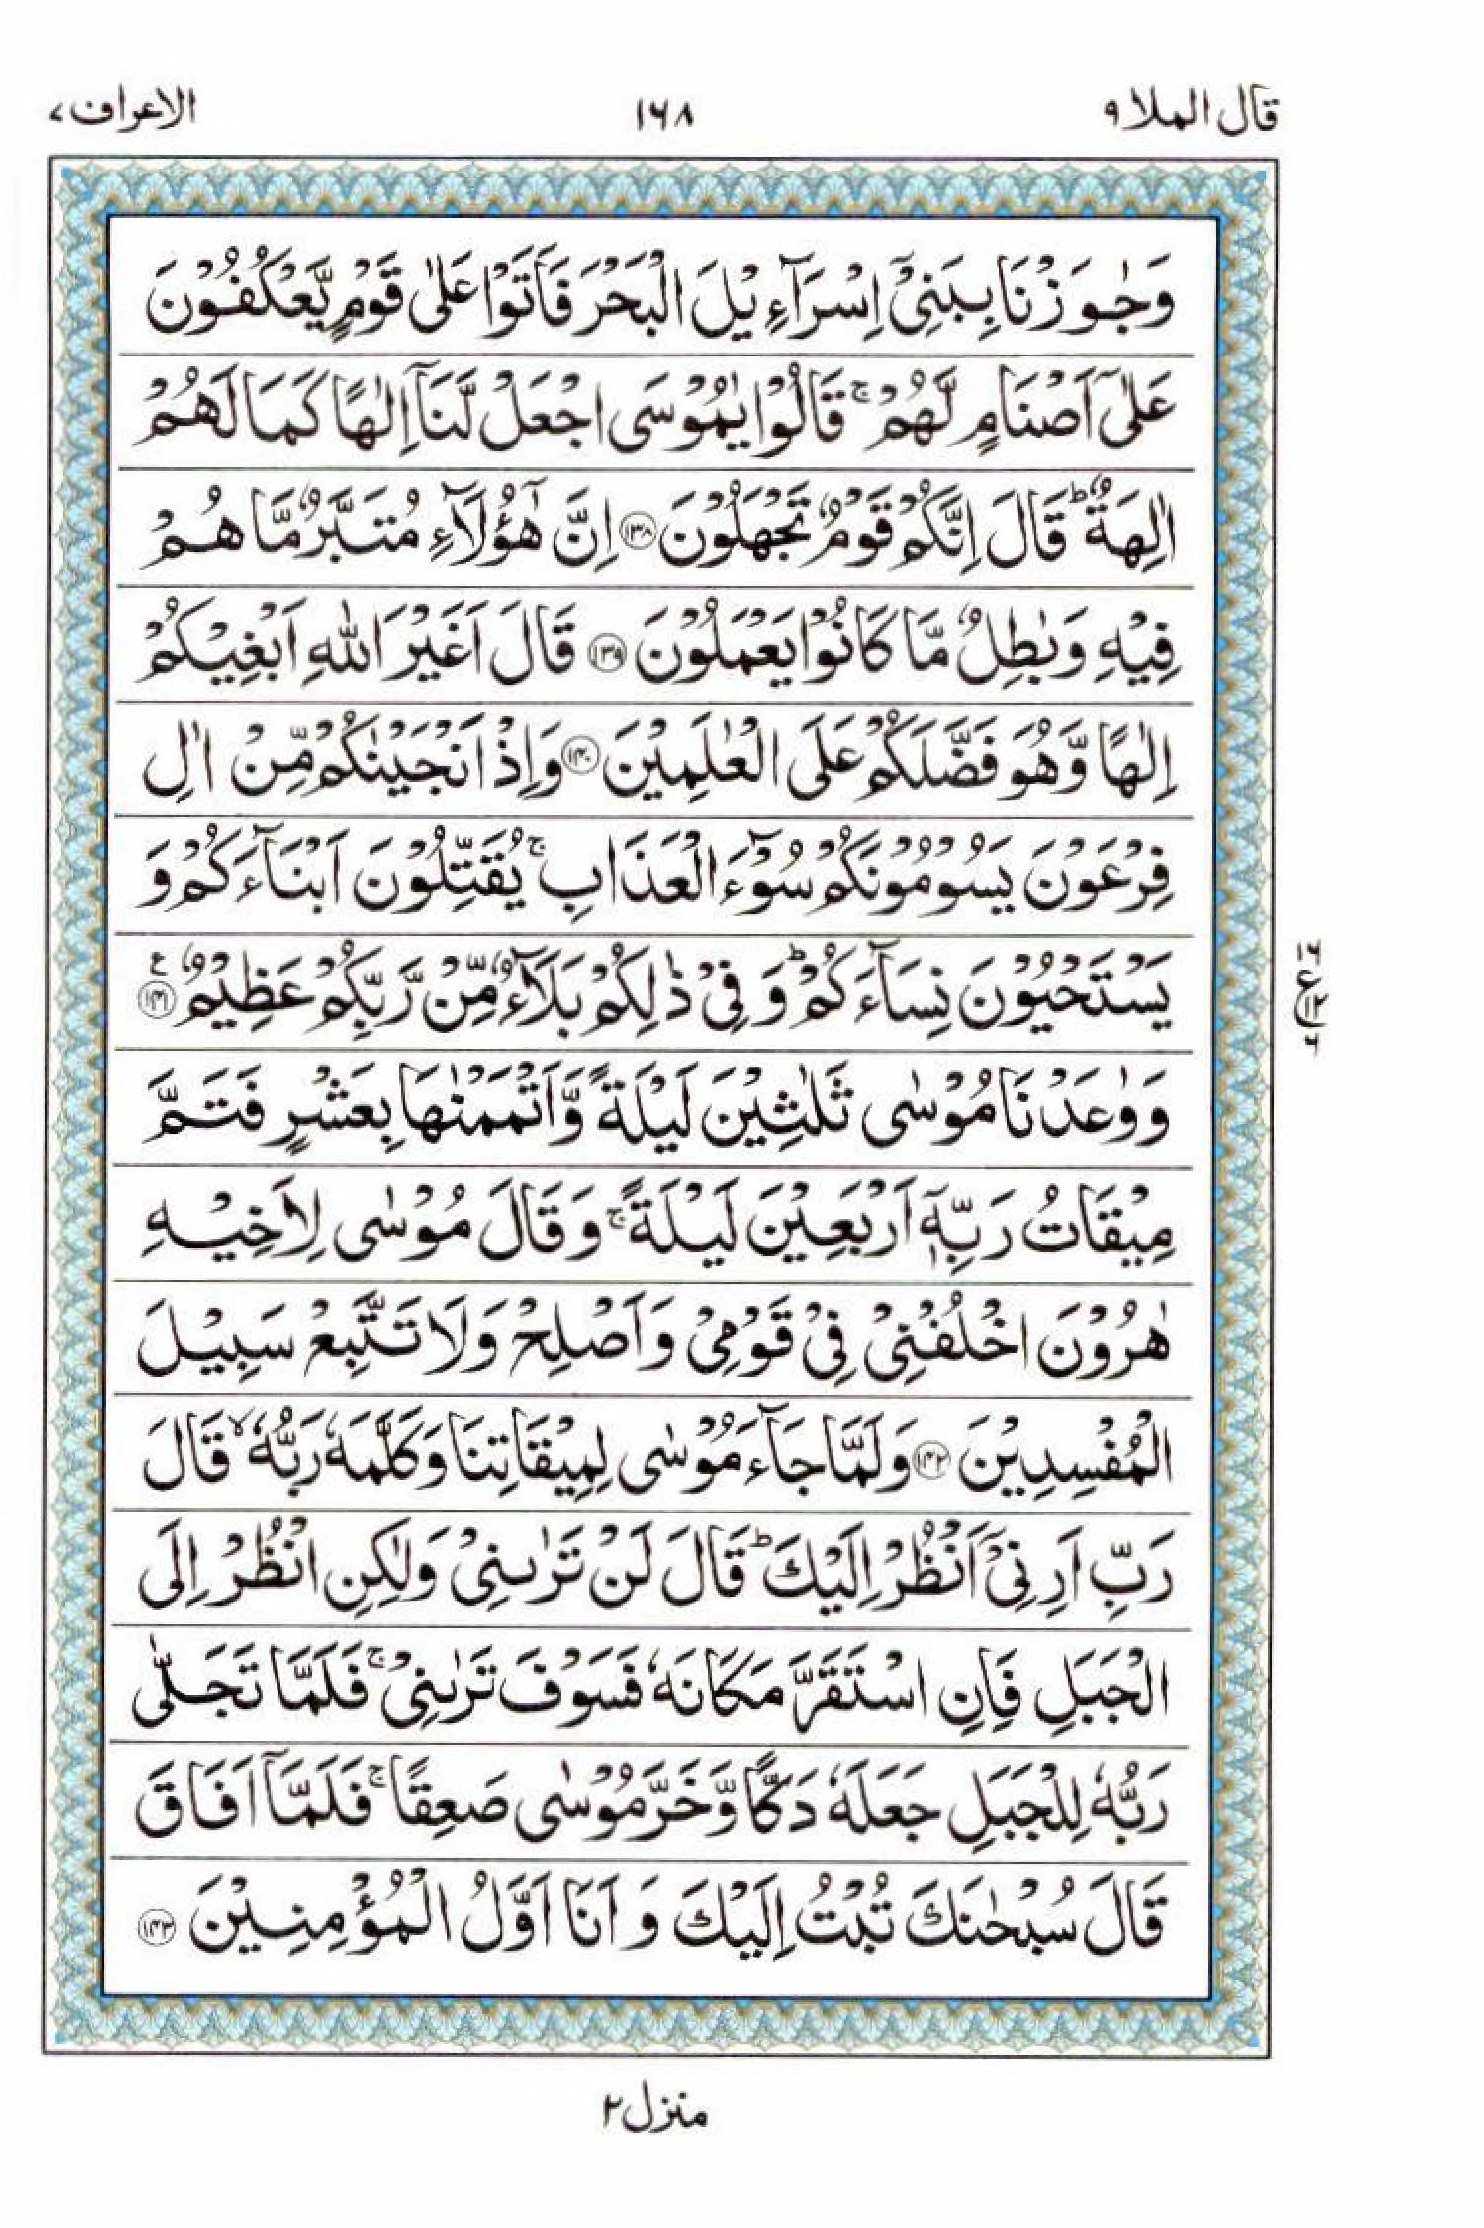 قال الملا ٩ ١٦٨ الاعراف ٧
وَجٰوَزْنَا بِبَنِيْٓ اِسْرَآءِيْلَ الْبَحْرَ فَاَتَوْا عَلٰى قَوْمٍ يَّعْكُفُوْنَ
عَلٰٓى اَصْنَامٍ لَّهُمْ ۚ قَالُوْا يٰمُوْسَى اجْعَلْ لَّنَآ اِلٰهًا كَمَا لَهُمْ
اٰلِهَةٌ ؕ قَالَ اِنَّكُمْ قَوْمٌ تَجْهَلُوْنَ ۝١٣٨ اِنَّ هٰٓؤُلَآءِ مُتَبَّرٌ مَّا هُمْ
فِيْهِ وَبٰطِلٌ مَّا كَانُوْا يَعْمَلُوْنَ ۝١٣٩ قَالَ اَغَيْرَ اللّٰهِ اَبْغِيْكُمْ
اِلٰهًا وَّهُوَ فَضَّلَكُمْ عَلَى الْعٰلَمِيْنَ ۝١٤٠ وَاِذْ اَنْجَيْنٰكُمْ مِّنْ اٰلِ
فِرْعَوْنَ يَسُوْمُوْنَكُمْ سُوْٓءَ الْعَذَابِ ۚ يُقَتِّلُوْنَ اَبْنَآءَكُمْ وَ
يَسْتَحْيُوْنَ نِسَآءَكُمْ ؕ وَفِيْ ذٰلِكُمْ بَلَآءٌ مِّنْ رَّبِّكُمْ عَظِيْمٌ ۝١٤١ ع
وَوٰعَدْنَا مُوْسٰى ثَلٰثِيْنَ لَيْلَةً وَّاَتْمَمْنٰهَا بِعَشْرٍ فَتَمَّ
مِيْقَاتُ رَبِّهٖٓ اَرْبَعِيْنَ لَيْلَةً ۚ وَقَالَ مُوْسٰى لِاَخِيْهِ
هٰرُوْنَ اخْلُفْنِيْ فِيْ قَوْمِيْ وَاَصْلِحْ وَلَا تَتَّبِعْ سَبِيْلَ
الْمُفْسِدِيْنَ ۝١٤٢ وَلَمَّا جَآءَ مُوْسٰى لِمِيْقَاتِنَا وَكَلَّمَهٗ رَبُّهٗ ۙ قَالَ
رَبِّ اَرِنِيْٓ اَنْظُرْ اِلَيْكَ ؕ قَالَ لَنْ تَرٰىنِيْ وَلٰكِنِ انْظُرْ اِلَى
الْجَبَلِ فَاِنِ اسْتَقَرَّ مَكَانَهٗ فَسَوْفَ تَرٰىنِيْ ۚ فَلَمَّا تَجَلّٰى
رَبُّهٗ لِلْجَبَلِ جَعَلَهٗ دَكًّا وَّخَرَّ مُوْسٰى صَعِقًا ۚ فَلَمَّآ اَفَاقَ
قَالَ سُبْحٰنَكَ تُبْتُ اِلَيْكَ وَاَنَا اَوَّلُ الْمُؤْمِنِيْنَ ۝١٤٣
منزل ٢